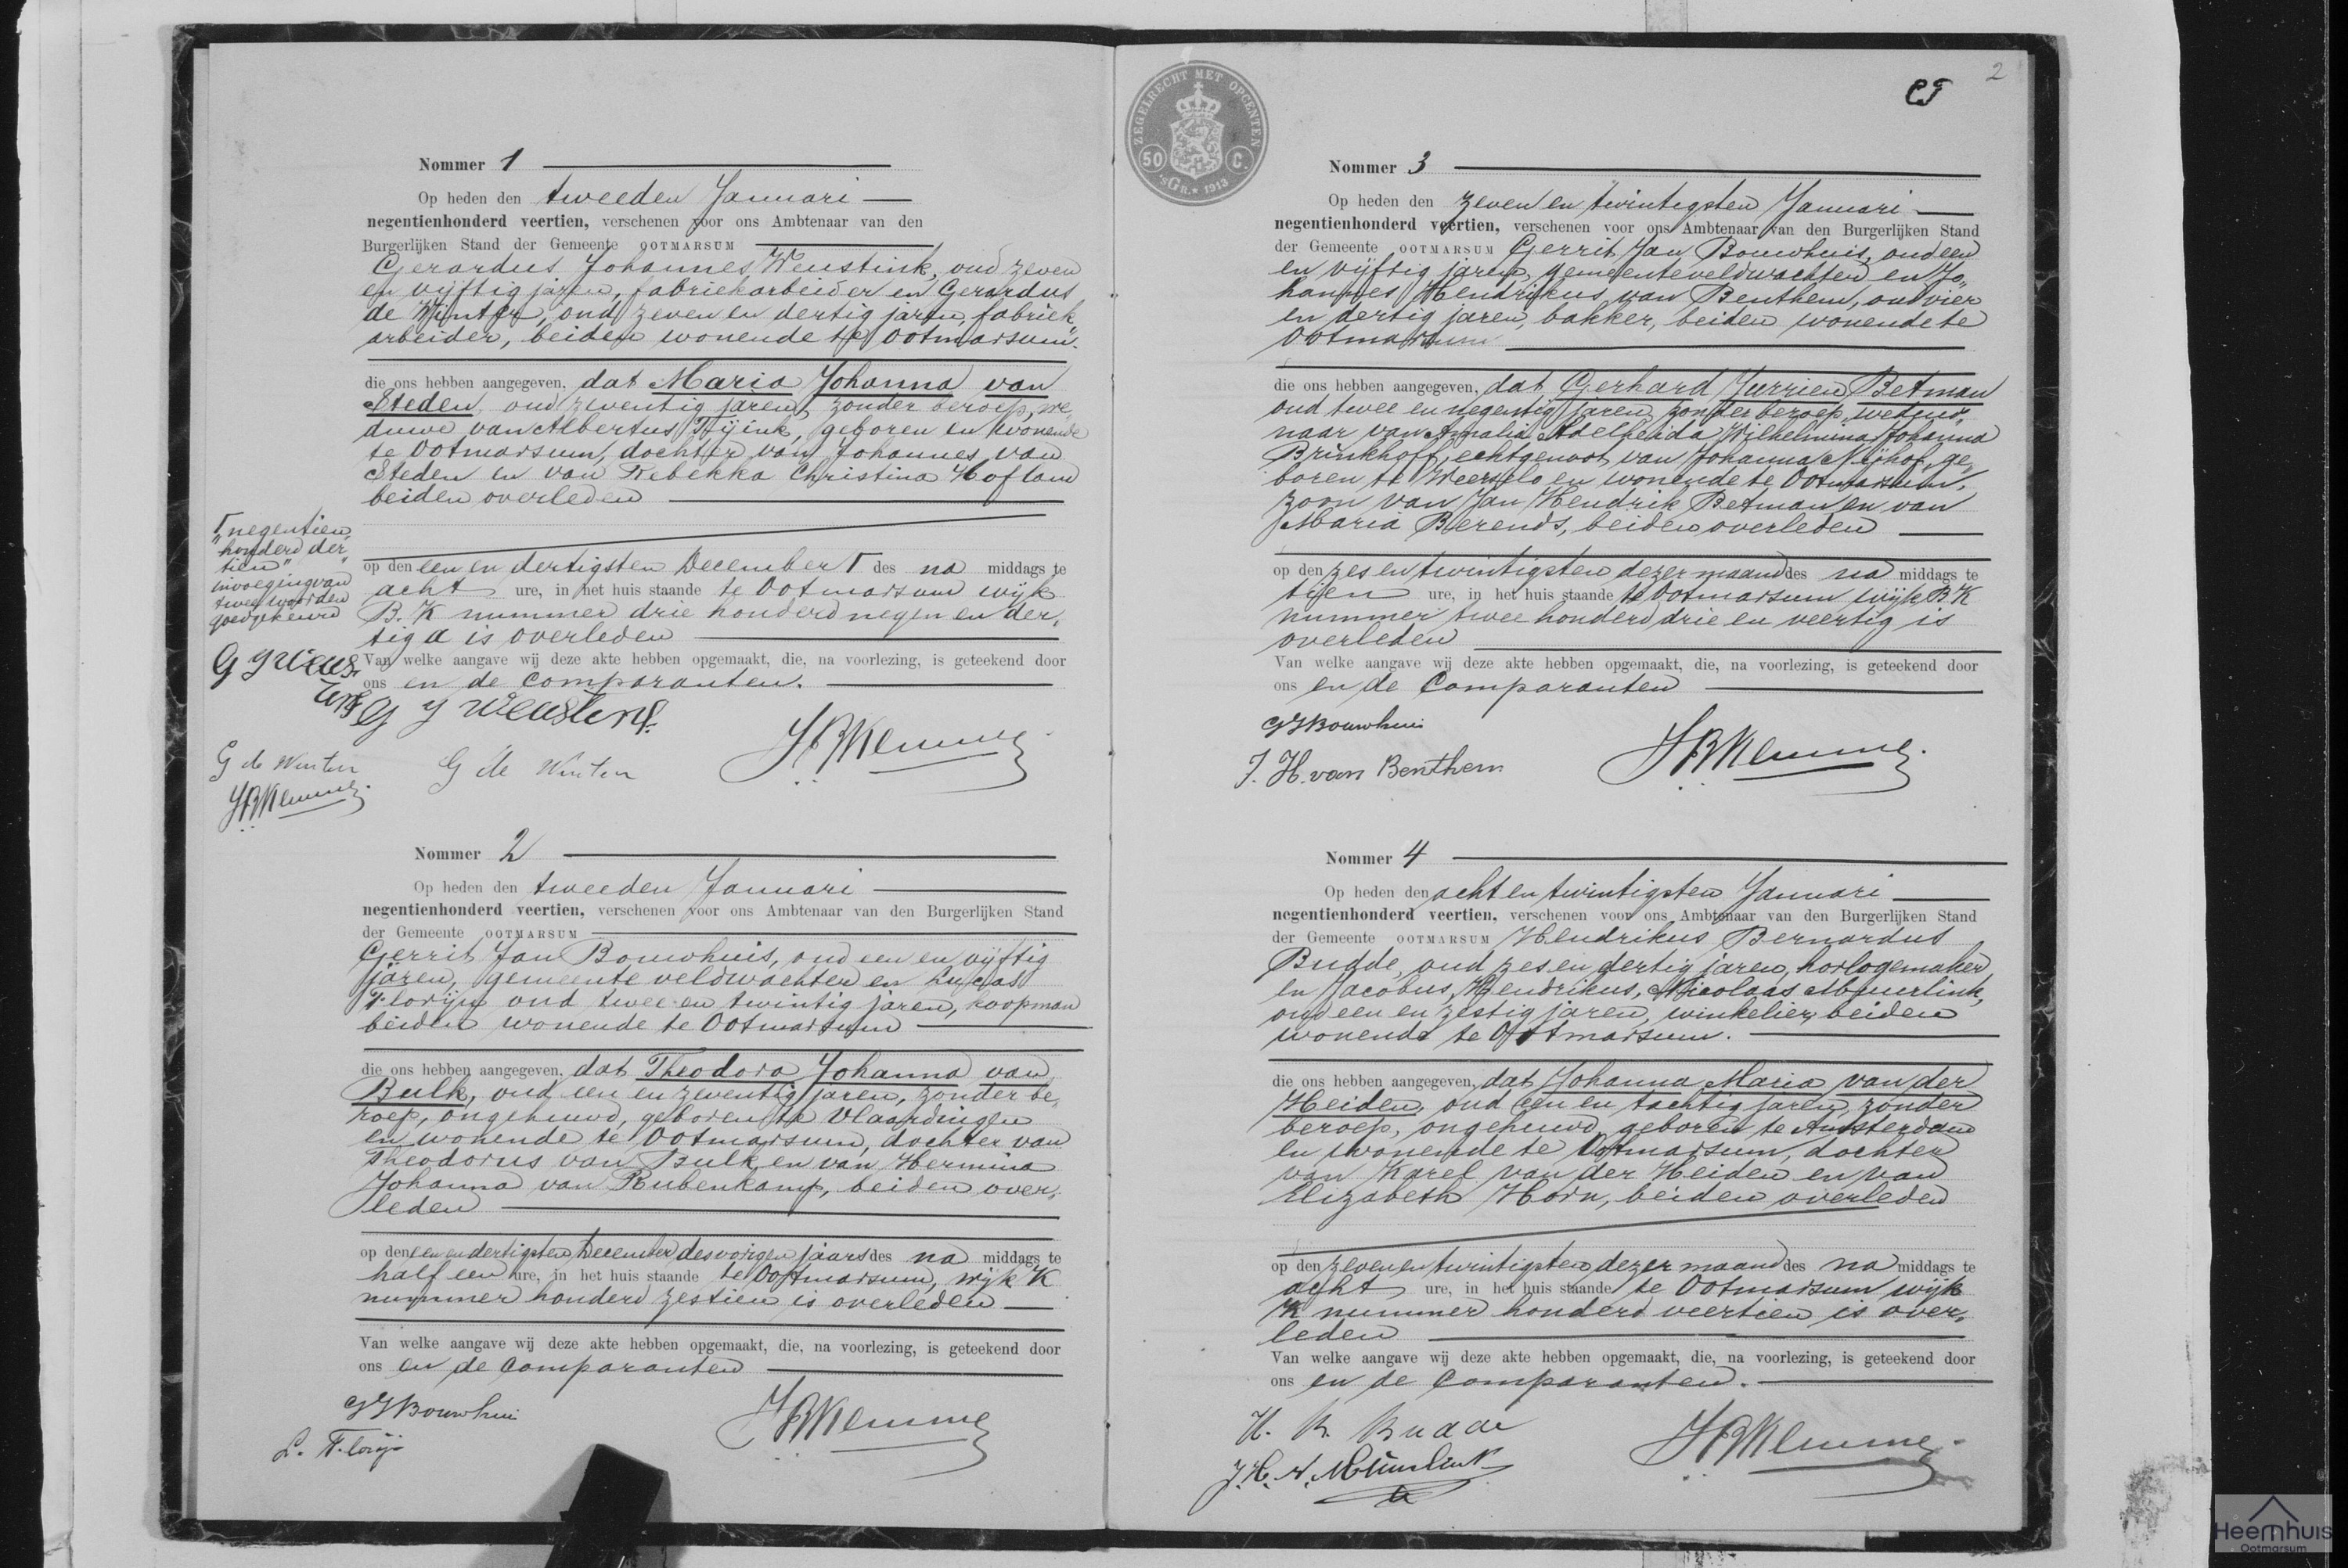 Nommer 1
Op heden den tweeden Januari
negentienhonderd veertien, verschenen voor ons Ambtenaar van den
Burgerlijken Stand der Gemeente OOTMARSUM
Gerardus Johannes Weustink, oud zeven
en vijftig jaren, fabriekarbeider en Gerardus
de Winter, oud zeven en dertig jaren, fabriek„
arbeider, beiden wonende te Ootmarsum.
die ons hebben aangegeven, dat Maria Johanna van
Steden, oud zeventig jaren, zonder beroep, we„
duwe van Albertus Tijink, geboren en wonende
te Ootmarsum, dochter van Johannes van
Steden en van Rebekka Christina Hofland
beiden overleden
„negentien„
„honderd der„
tien"
invoeging van
twee woorden
goedgekeurd
op den een en dertigsten December des na middags te
acht ure, in het huis staande te Ootmarsum wijk
B. K nummer drie honderd negen en der„
tig a is overleden
Van welke aangave wij deze akte hebben opgemaakt, die, na voorlezing, is geteekend door
ons en de comparanten.
G J Weus
tink
G J Weustink
G de Winter
G de Winter
HBKlemme
HBKlemme
Nommer 2
Op heden den tweeden Januari
negentienhonderd veertien, verschenen voor ons Ambtenaar van den Burgerlijken Stand
der Gemeente OOTMARSUM
Gerrit Jan Bouwhuis, oud een en vijftig
jaren, gemeente veldwachter en Lucas
Florijn oud twee en twintig jaren, koopman
beiden wonende te Ootmarsum
die ons hebben aangegeven, dat Theodora Johanna van
Bulk, oud een en zeventig jaren, zonder be„
roep, ongehuwd, geboren te Vlaardingen
en wonende te Ootmarsum, dochter van
Theodorus van Bulk en van Hermina
Johanna van Rubenkamp, beiden over„
leden
op den een en dertigsten December des vorigen jaars des na middags te
half een ure, in het huis staande te Ootmarsum, wijk K
nummer honderd zestien is overleden
Van welke aangave wij deze akte hebben opgemaakt, die, na voorlezing, is geteekend door
ons en de comparanten
GJBouwhuis
L. Florijn
HBKlemme
ZEGELRECHT MET OPCENTEN
50 C.
'sGR. * 1913
2
Nommer 3
Op heden den zeven en twintigsten Januari
negentienhonderd veertien, verschenen voor ons Ambtenaar van den Burgerlijken Stand
der Gemeente OOTMARSUM Gerrit Jan Bouwhuis, oud een
en vijftig jaren, gemeenteveldwachter en Jo„
hannes Hendrikus van Benthem, oud vier
en dertig jaren, bakker, beiden wonende te
Ootmarsum
die ons hebben aangegeven, dat Gerhard Jurrien Betman
oud twee en negentig jaren zonder beroep, weduw„
naar van Amalia Adelheida Wilhelmina Johanna
Brinkhoff, echtgenoot van Johanna Nijhof, ge„
boren te Weerselo en wonende te Ootmarsum,
zoon van Jan Hendrik Betman en van
Maria Berends, beiden overleden
op den zes en twintigsten dezer maand des na middags te
tien ure, in het huis staande te Ootmarsum wijk B. K
nummer twee honderd drie en veertig is
overleden
Van welke aangave wij deze akte hebben opgemaakt, die, na voorlezing, is geteekend door
ons en de Comparanten
GJBouwhuis
J. H. van Benthem
HBKlemme.
Nommer 4
Op heden den acht en twintigsten Januari
negentienhonderd veertien, verschenen voor ons Ambtenaar van den Burgerlijken Stand
der Gemeente OOTMARSUM Hendrikus Bernardus
Budde, oud zes en dertig jaren, horlogemaker
en Jacobus, Hendrikus, Nicolaas Meurlink,
oud een en zestig jaren, winkelier, beiden
wonende te Ootmarsum.
die ons hebben aangegeven, dat Johanna Maria van der
Heiden, oud een en tachtig jaren, zonder
beroep, ongehuwd, geboren te Amsterdam
en wonende te Ootmarsum, dochter
van Karel van der Heiden en van
Elizabeth Horn, beiden overleden
op den zeven en twintigsten dezer maand des na middags te
acht ure, in het huis staande te Ootmarsum wijk
K nummer honderd veertien is over„
leden
Van welke aangave wij deze akte hebben opgemaakt, die, na voorlezing, is geteekend door
ons en de comparanten.
H. B. Budde
J. H. N. Meurlink
HBKlemme.
Heemhuis
Ootmarsum